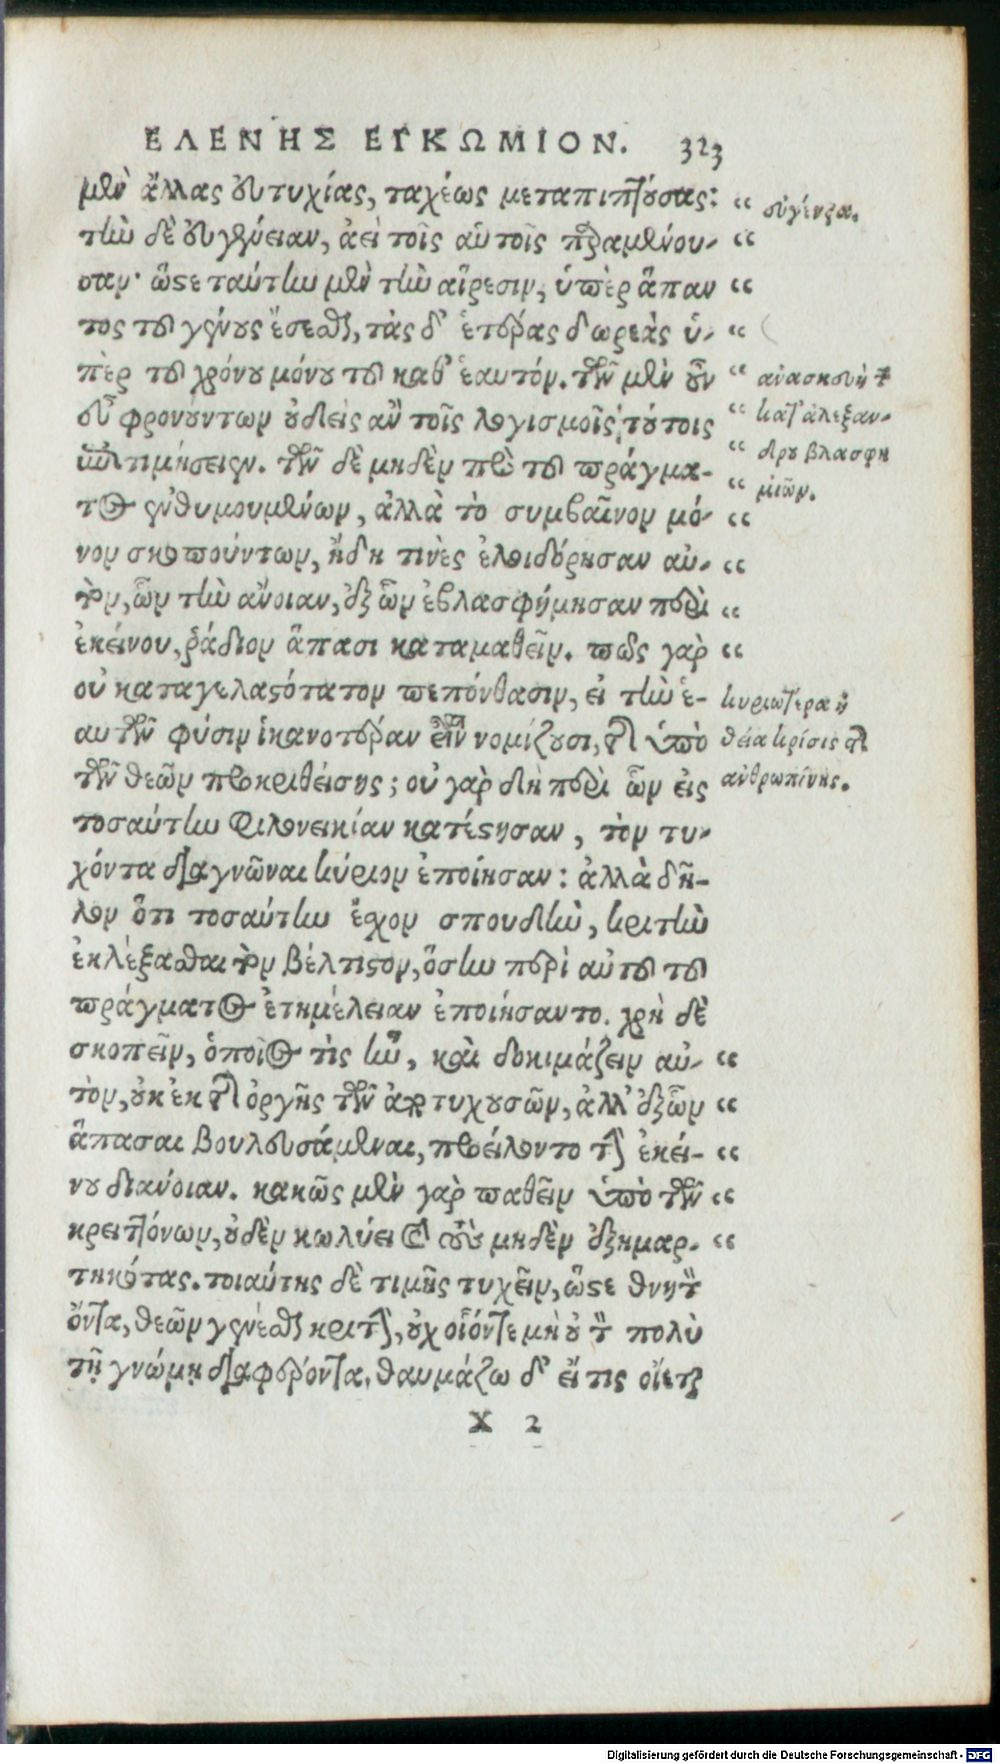 ΕΛΕΝΗΣ ΕΓΚΩΜΙΟΝ. 323
μὲν ἄλλας εὐτυχίας, ταχέως μεταπιπτούσας:
τὴν δὲ εὐγένειαν, ἀεὶ τοῖς αὐτοῖς παραμένου-
σαν· ὥστε ταύτην μὲν τὴν αἵρεσιν, ὑπὲρ ἅπαν
τος τοῦ γένους ἔσεσθαι, τὰς δ' ἑτέρας δωρεὰς ὑ-
πὲρ τοῦ χρόνου μόνου τοῦ καθ' ἑαυτόν. τῶν μὲν οὖν
εὖ φρονούντων οὐδεὶς ἂν τοῖς λογισμοῖς τούτοις
ἐπιτιμήσειεν. τῶν δὲ μηδὲν πρὸ τοῦ πράγμα-
τος ἐνθυμουμένων, ἀλλὰ τὸ συμβαῖνον μό-
νον σκοπούντων, ἤδη τινὲς ἐλοιδόρησαν αὐ-
τὸν, ὧν τὴν ἄνοιαν, ἐξ ὧν ἐβλασφήμησαν περὶ
ἐκείνου, ῥάδιον ἅπασι καταμαθεῖν. πῶς γὰρ
οὐ καταγελαστότατον πεπόνθασιν, εἰ τὴν ἑ-
αυτῶν φύσιν ἱκανοτέραν εἶναι νομίζουσι, τῆς ὑπὸ
τῶν θεῶν προκριθείσης; οὐ γὰρ δὴ περὶ ὧν εἰς
τοσαύτην φιλονεικίαν κατέστησαν, τὸν τυ-
χόντα διαγνῶναι κύριον ἐποίησαν: ἀλλὰ δῆ-
λον ὅτι τοσαύτην ἔχον σπουδὴν, κριτὴν
ἐκλέξασθαι τὸν βέλτιστον, ὅσην περὶ αὐτοῦ τοῦ
πράγματος ἐπιμέλειαν ἐποιήσαντο. χρὴ δὲ
σκοπεῖν, ὁποῖος τὶς ἦν, καὶ δοκιμάζειν αὐ-
τὸν, οὐκ ἐκ τῆς ὀργῆς τῶν ἀποτυχουσῶν, ἀλλ' ἐξ ὧν
ἅπασαι βουλευσάμεναι, προείλοντο τὴν ἐκεί-
νου διάνοιαν. κακῶς μὲν γὰρ παθεῖν ὑπὸ τῶν
κρειττόνων, οὐδὲν κωλύει καὶ τοὺς μηδὲν ἐξημαρ-
τηκότας. τοιαύτης δὲ τιμῆς τυχεῖν, ὥστε θνητὸν
ὄντα, θεῶν γενέσθαι κριτὴν, οὐχ οἷόντε μὴ οὐ τὸν πολὺ
τῇ γνώμῃ διαφέροντα. θαυμάζω δ' εἴ τις οἴεται
X 2
εὐγένεια.
ἀνασκευὴ τῶν
κατ' ἀλεξαν-
δρου βλασφη
μιῶν.
κυριωτέρα ἡ
θεία κρίσις τῆς
ἀνθρωπίνης.
Digitalisierung gefördert durch die Deutsche Forschungsgemeinschaft - DFG